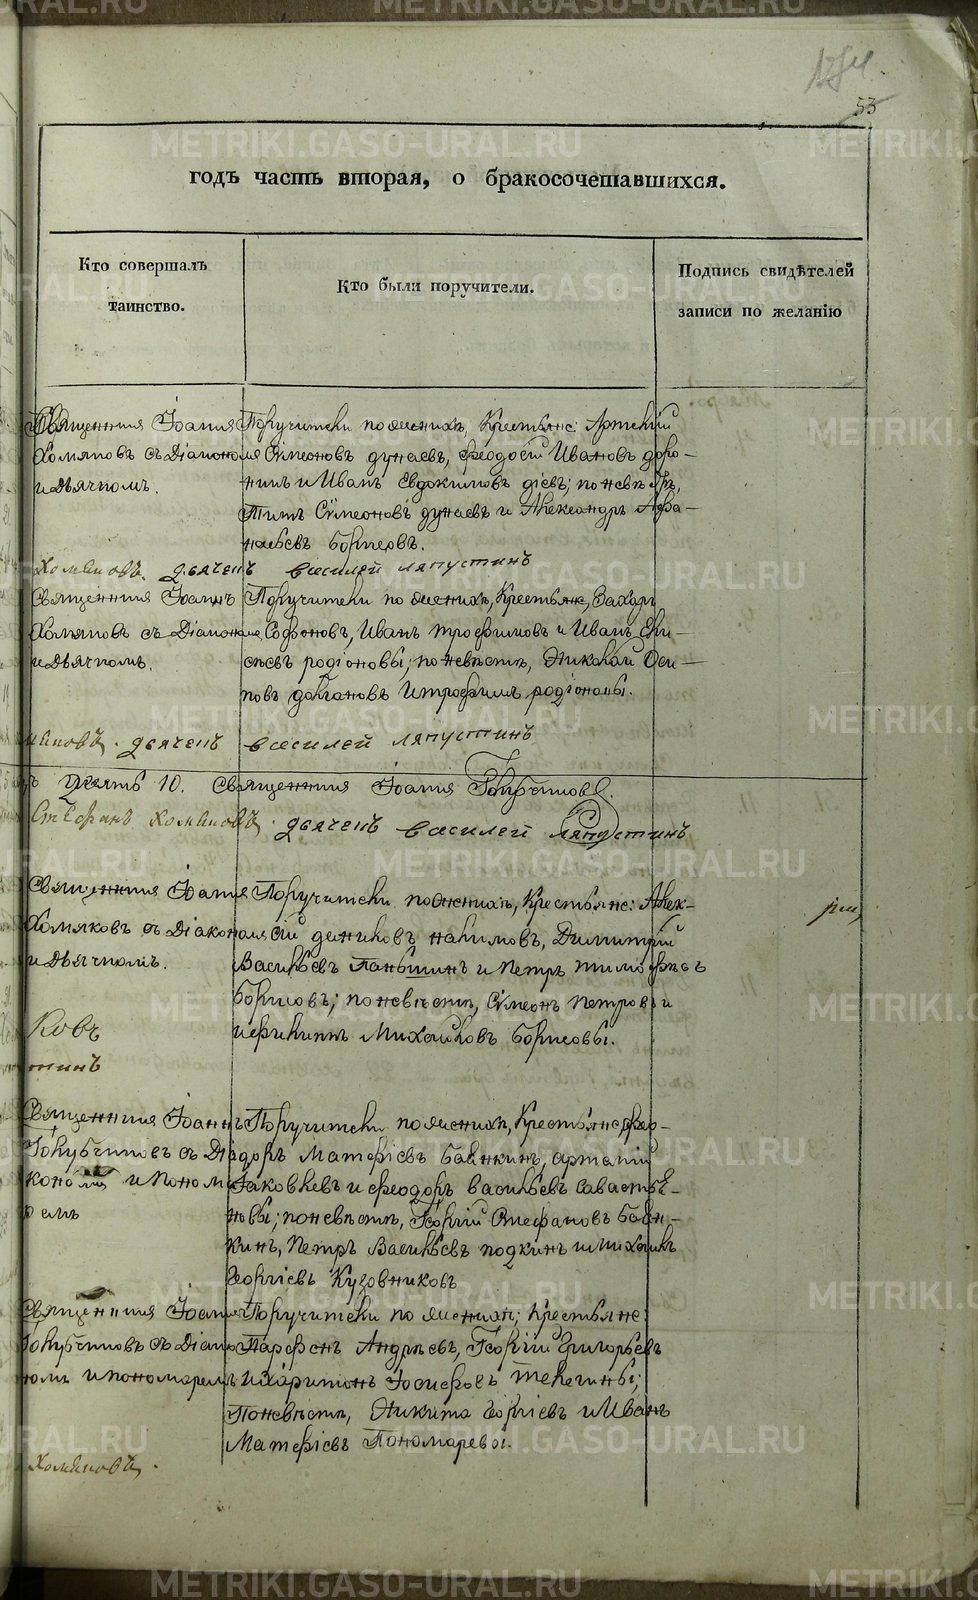 53
годъ часть вторая, о бракосочетавшихся.
Кто совершалъ
таинство.
Кто были поручители.
Подпись свидѣтелей
записи по желанію
Священникъ Іоаннъ
Хомяковъ съ Діакономъ
и Дьячкомъ.
Поручители по женихѣ, Крестьяне:
Симеоновъ Дунаевъ, Феодосій Ивановъ Доро-
нинъ и Иванъ Евдокимовъ
Титъ Симеоновъ Дунаевъ и Александръ Афа-
насьевъ Борисовъ.
Хомяковъ. дьячекъ василей ляпустинъ
Священникъ Іоаннъ
Хомяковъ съ Діакономъ
и Дьячкомъ.
Поручители по женихѣ, Крестьяне, Захаръ
Софоновъ, Иванъ Трофимовъ и Иванъ Ели-
сѣевъ Родіоновы; по невѣстѣ, Николай Оси-
повъ и Трофимъ
дьячекъ василей ляпустинъ
10. Священникъ Іоаннъ Голубчиковъ.
Стефанъ Хомяковъ. дьячекъ василей ляпустинъ
Священникъ Іоаннъ
Хомяковъ съ Діакономъ
и Дьячкомъ.
Поручители по женихѣ, Крестьяне: Алек-
сій Димитрій
Васильевъ Паньшинъ и Петръ Тимофѣевъ
Борисовъ; по невѣстѣ, Симеонъ Петровъ и
Михайловъ Борисовы.
Ковъ
тинъ
Священникъ Іоаннъ
Голубчиковъ съ Діа-
кономъ и Понома-
ремъ
Поручители по женихѣ, Крестьяне Фео-
доръ Матфіевъ Баянкинъ, Артамій
Іаковлевъ и Феодоръ Васильевъ Савастья-
новы; по невѣстѣ, Георгій Стефановъ Баян-
кинъ, Петръ Васильевъ и Михаилъ
Георгіевъ Кузовниковъ
Священникъ Іоаннъ
Голубчиковъ съ Діако-
номъ и пономаремъ
Поручители по женихѣ; Крестьяне:
Парфенъ Андрѣевъ, Георгій Григорьевъ
и Харитонъ Іосифовъ Телегины;
По невѣстѣ, Никита Георгіевъ и Иванъ
Матфіевъ Пономаревы.
Хомяковъ.
METRIKI.GASO-URAL.RU